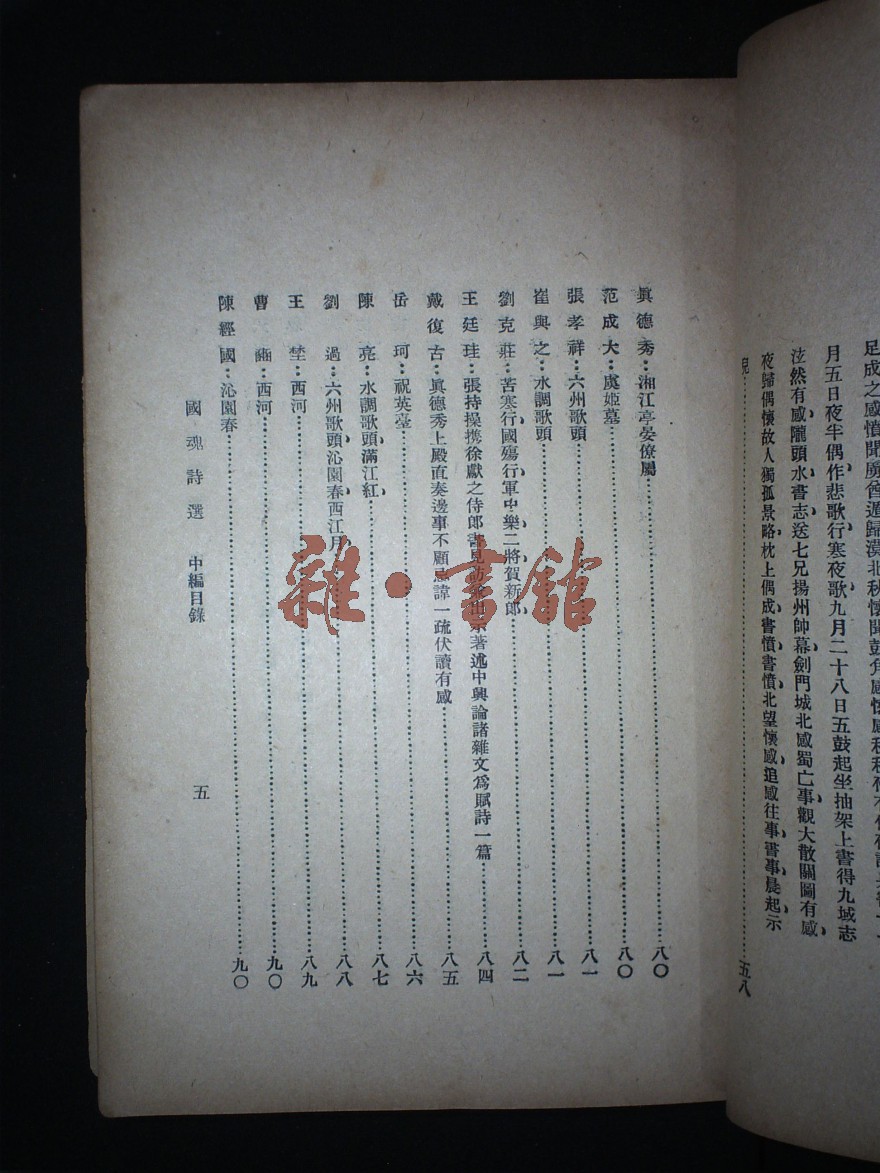 月五日夜半偶作悲歌行寒夜歌九月二十八日五鼓起坐抽架上書得九域志
泫然有感隴頭水書志送七兄揚州帥幕劍門城北感蜀亡事觀大散關圖有感
夜歸偶懷故人獨孤景略枕上偶成書憤書憤北望懷感追感往事書事晨起示
兒 五八
眞德秀：湘江亭晏僚屬 八〇
范成大：虞姬墓 八〇
張孝祥：六州歌頭 八一
崔與之：水調歌頭 八一
劉克莊：苦寒行國殤行軍中樂二將賀新郎 八二
王廷珪：張持操攜徐獻之侍郎書見訪 著述中興論諸雜文爲賦詩一篇 八四
戴復古：眞德秀上殿直奏邊事不顧忌諱一疏伏讀有感 八五
岳珂：祝英臺 八六
陳亮：水調歌頭滿江紅 八七
劉過：六州歌頭沁園春西江月 八八
王埜：西河 八九
曹豳：西河 九〇
陳經國：沁園春 九〇
國魂詩選 中編目錄 五
雜·書館